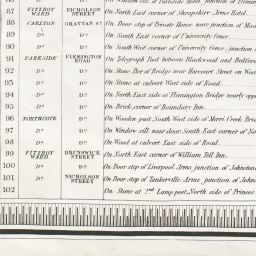 87 FITZROY WARD NICHOLSON STREET On North East corner of Shropshire Arms Hotel
88 CARLTON GRATTAN ST On Door step of Private House near junction of
89 Do Do On South East corner of University fence
90 Do Do On South West corner of University fence, junction
91 PARKSIDE FLEMINGTON ROAD On Telegraph Post between Blackwood and
92 Do Do On Stone Pier of Bridge near Harcourt Street on West
93 Do Do On Stone at culvert West side of Road
94 Do Do On North East side of Flemington Bridge nearly
95 Do Do On Brick corner of Boundary Inn
96 NORTHCOTE Do On Wooden post, South West side of Merri Creek
97 Do Do On Window sill near door, South East corner of
98 Do Do On Wood at culvert East side of Road
99 FITZROY WARD BRUNSWICK STREET On North East corner of William Tell Inn
100 Do Do On Door step of Liverpool Arms, junction of
101 Do NICHOLSON STREET On Door step of Tankerville Arms, junction of
102 On Stone at 2nd Lamp post, North side of Princes